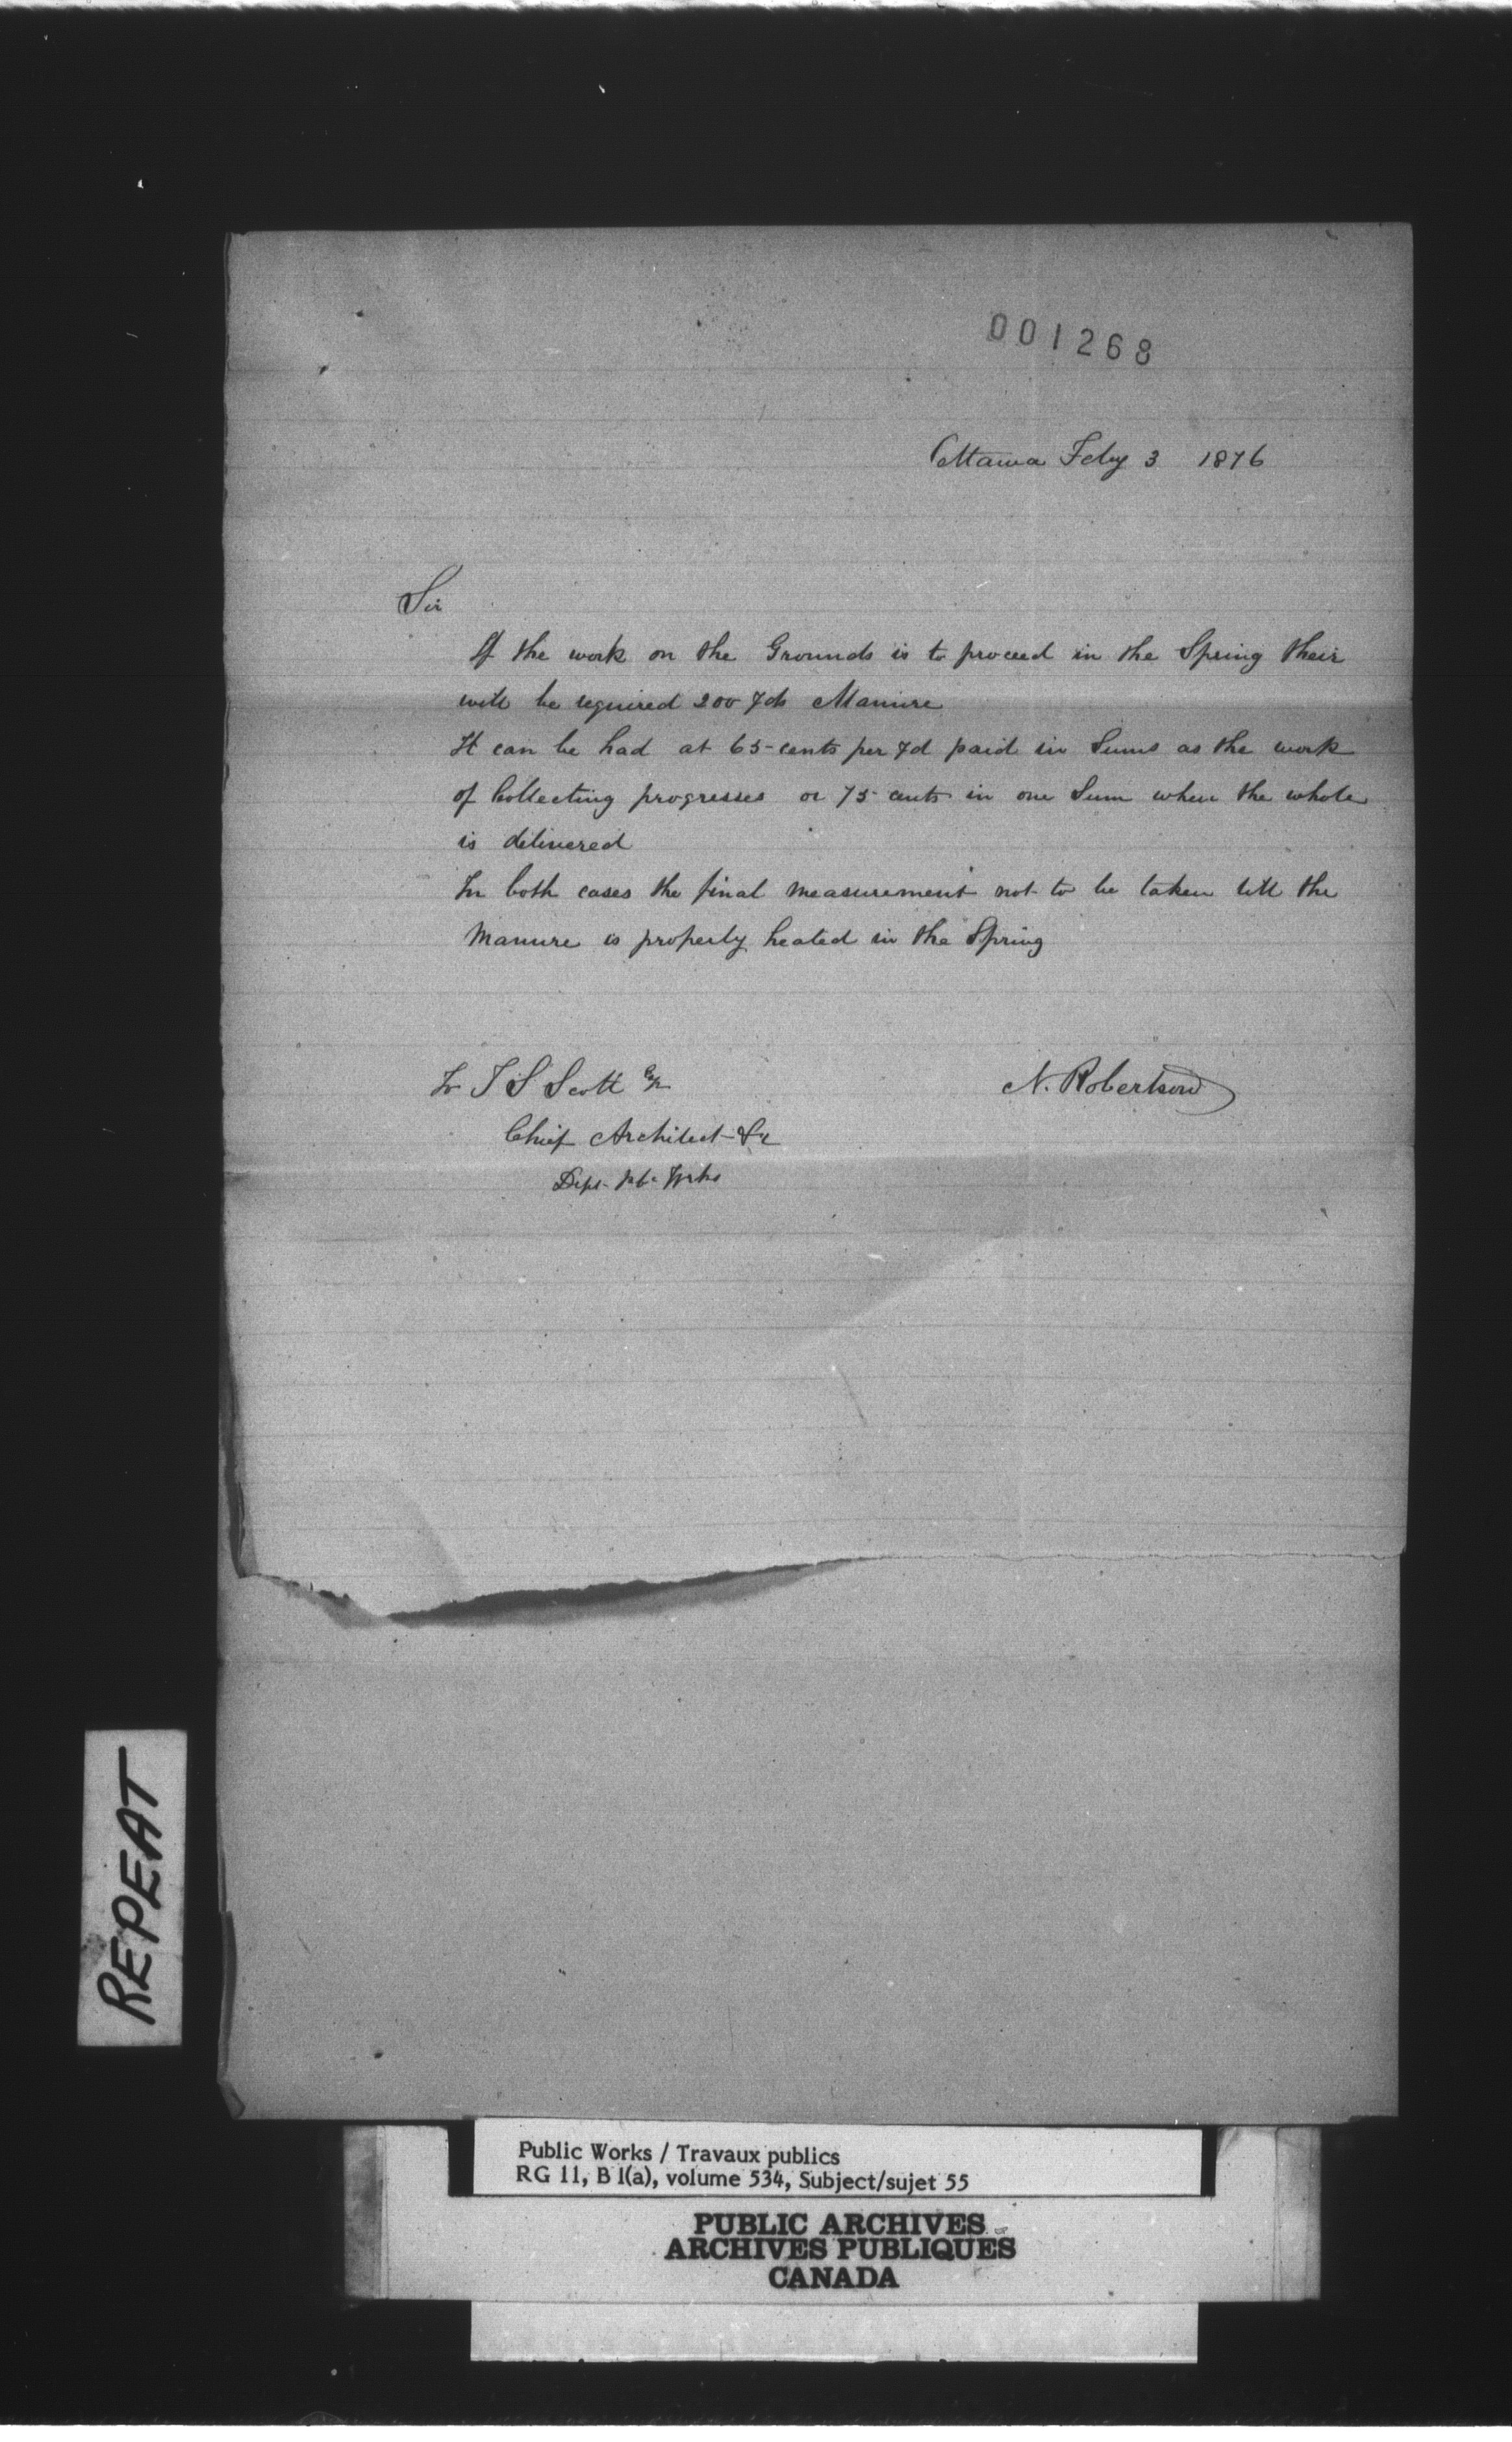 001268
Ottawa Feby 3 1876
Sir
If the work on the Grounds is to proceed in the Spring their
will be required 200 Yds Manure
It can be had at 65 cents per Yd paid in Sums as the work
of Collecting progresses or 75 cents in one Sum when the whole
is delivered
In both cases the final measurement not to be taken till the
Manure is properly heated in the Spring
To T S Scott Esqr
N. Robertson
Chief Architect &c
Dept Pbc Wrks
REPEAT
Public Works / Travaux publics
RG 11, B 1(a), volume 534, Subject/sujet 55
PUBLIC ARCHIVES
ARCHIVES PUBLIQUES
CANADA